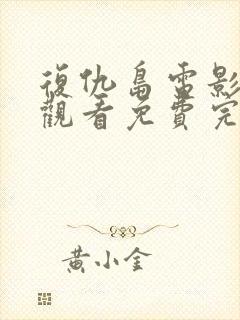 復仇島雷影
觀看免費完
黃小金